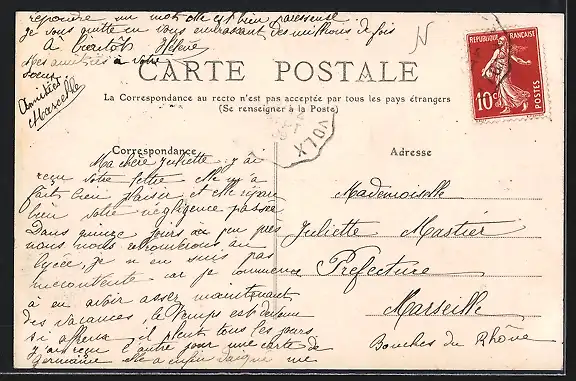 répondre un mot elle est bien paresseuse
Je vous quitte en vous embrassant des millions de fois
A bientôt Hélène
Mes amitiés à votre
soeur
Amitiés
Marcelle
N
CARTE POSTALE
La Correspondance au recto n'est pas acceptée par tous les pays étrangers
(Se renseigner à la Poste)
RÉPUBLIQUE FRANÇAISE
10c
POSTES
VOLX
Correspondance
Ma chère Juliette, j'ai
reçu votre lettre elle m'a
fait bien plaisir et elle répare
bien votre négligence passée
Dans quinze jours à peu près
nous nous retrouverons au
lycée, je n'en suis pas
mécontente car je commence
à en avoir assez maintenant
des vacances, le temps est devenu
si affreux il pleut tous les jours
J'ai reçu l'autre jour une carte de
Germaine elle a enfin daigné me
Adresse
Mademoiselle
Juliette Mastier
Préfecture
Marseille
Bouches du Rhône